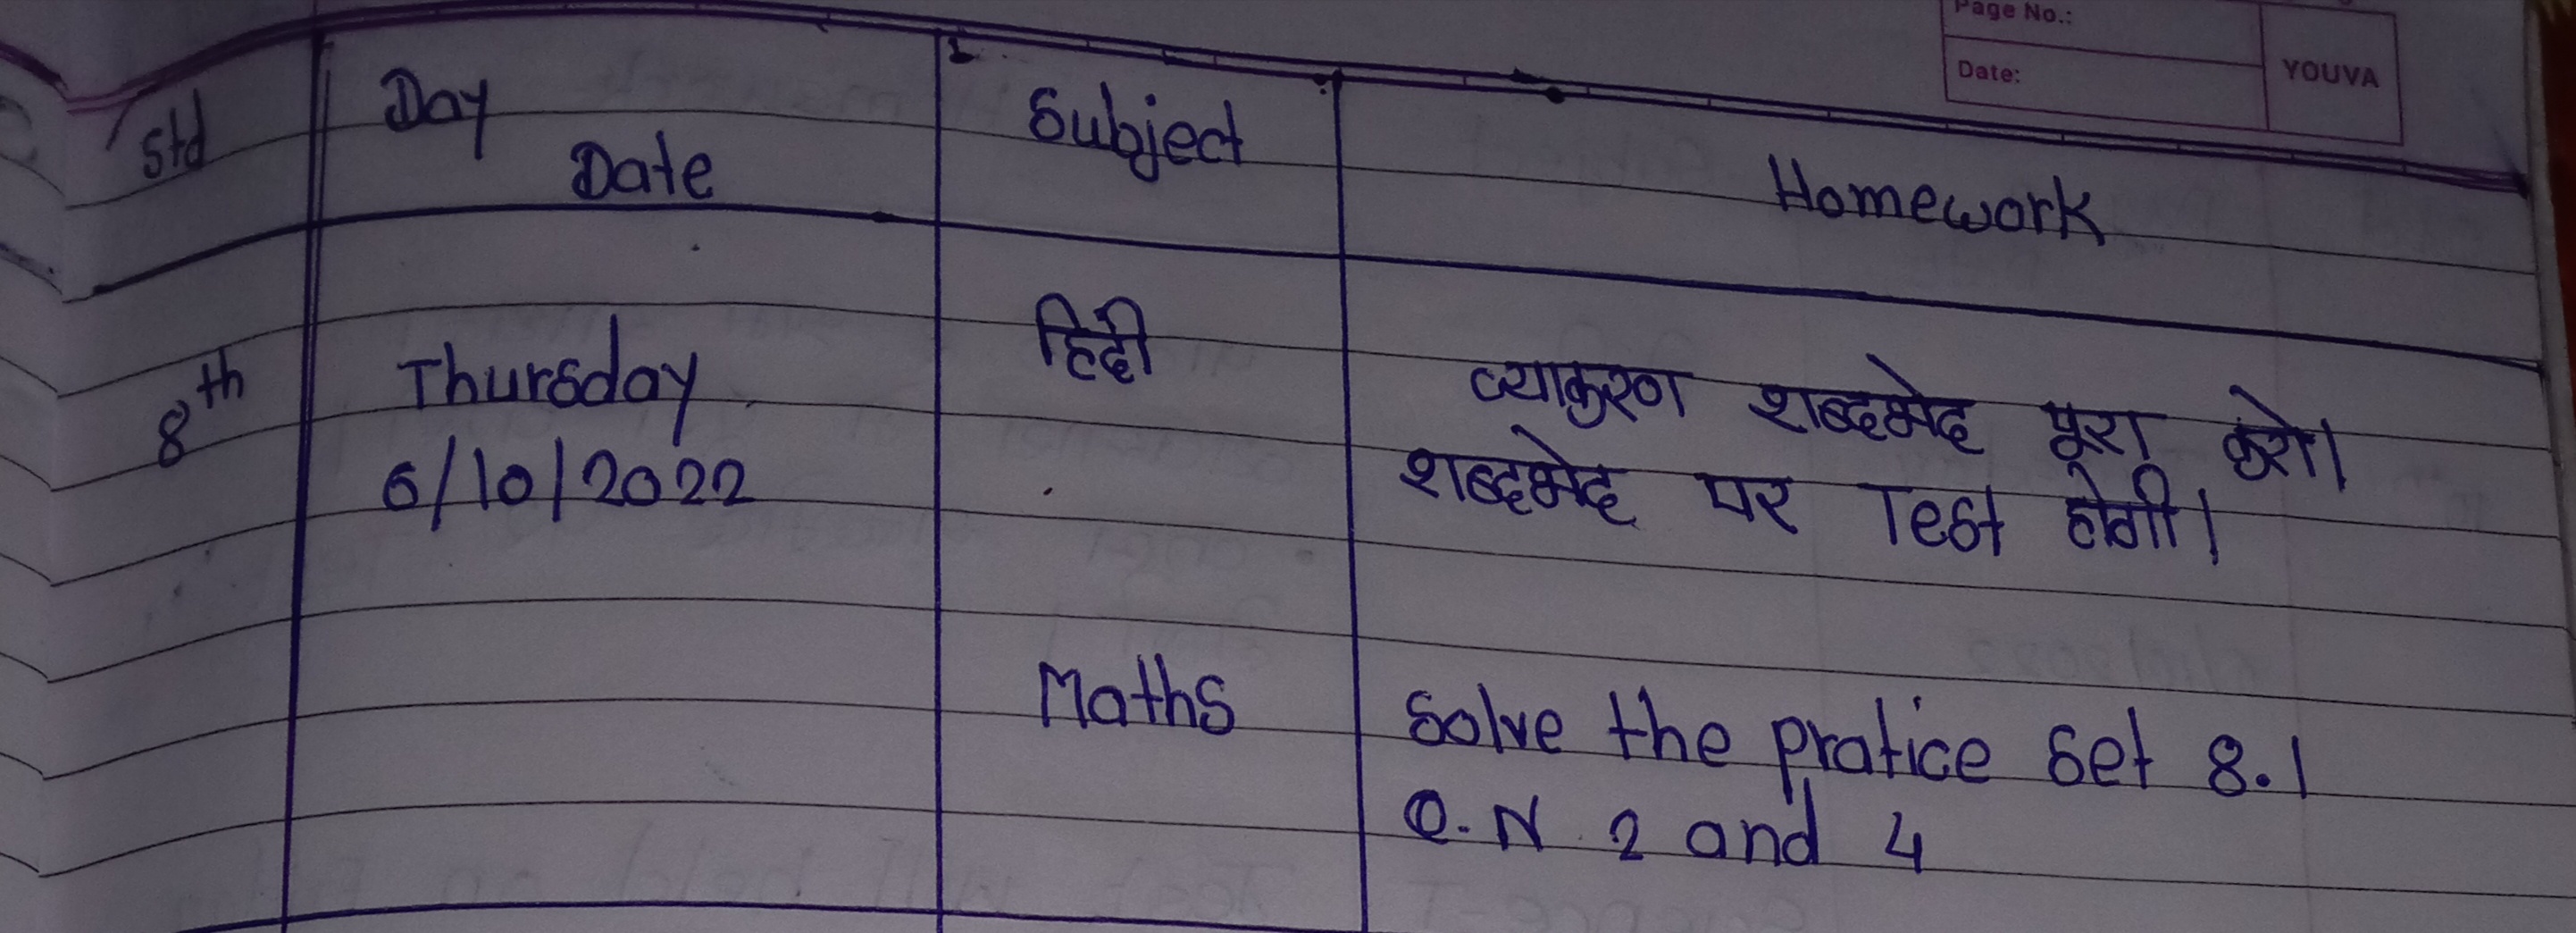 Page No.:
Date:
YOUVA
Std
Day
Date
Subject
Homework
8th
Thursday
6/10/2022
हिदी
व्याकरण शब्दभेद पूरा करो।
शब्दभेद पर Test होगी।
Maths
Solve the pratice set 8.1
Q.N 2 and 4